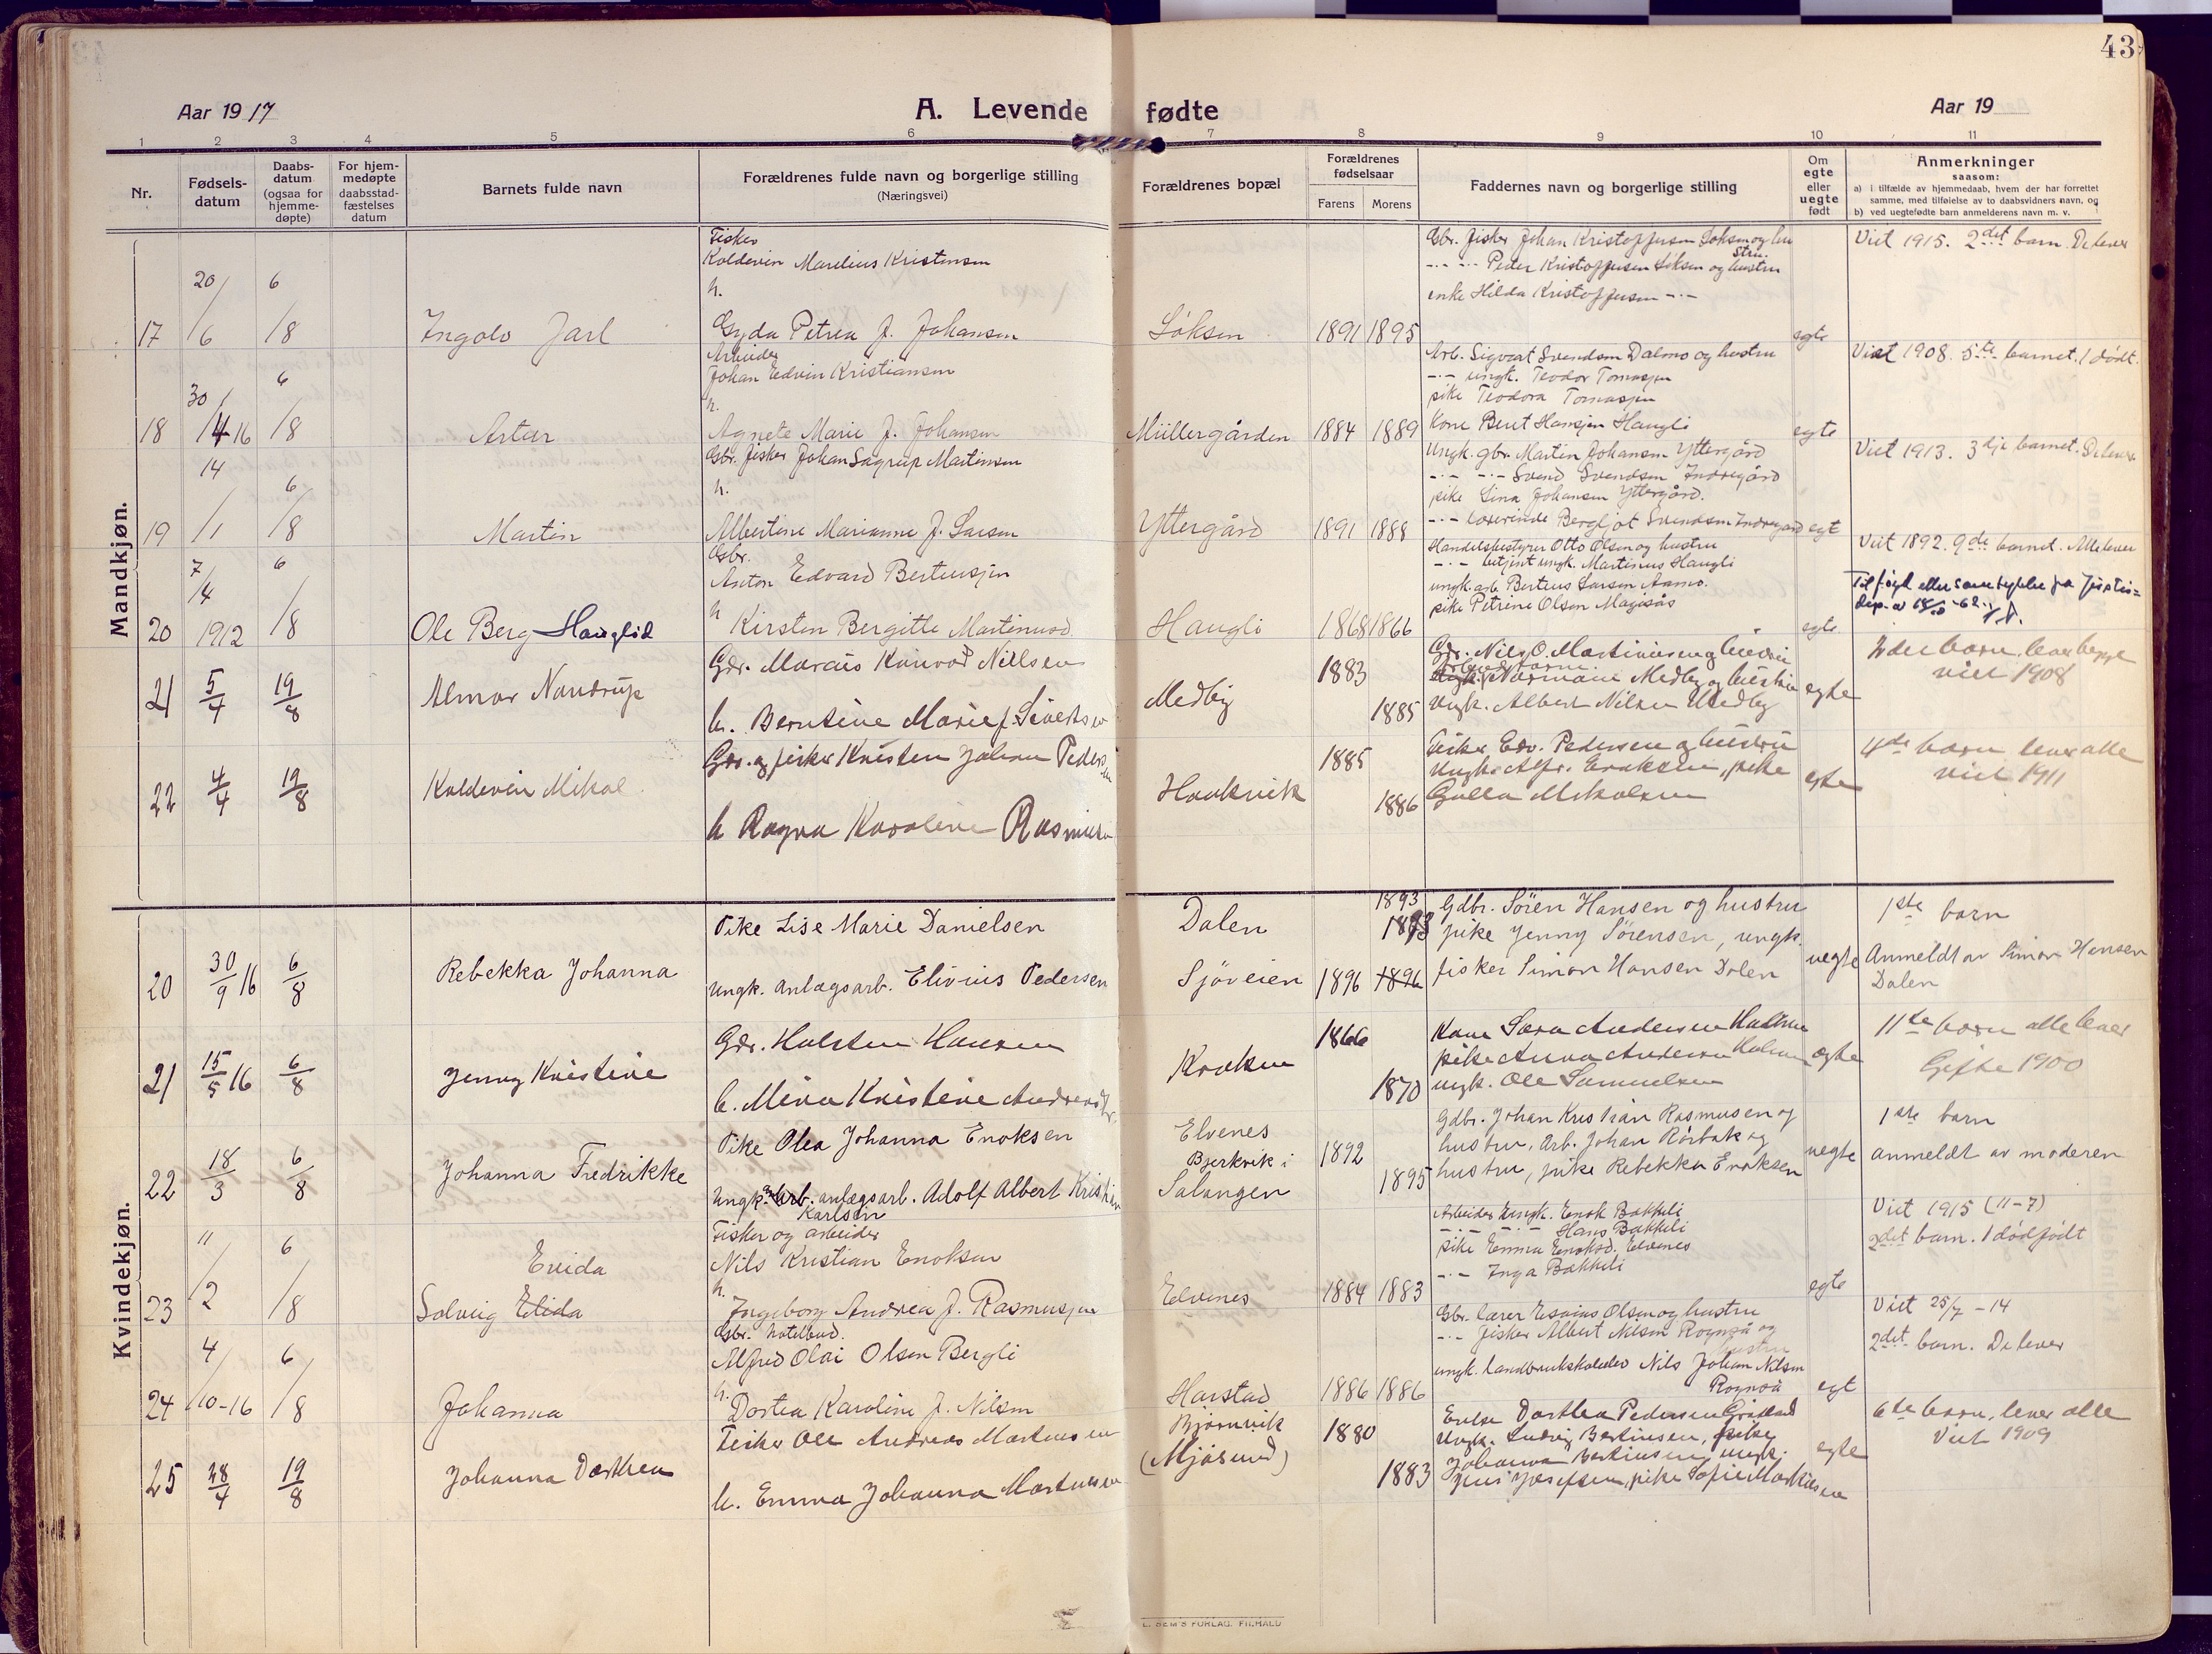 43
Aar 1917
A. Levende fødte
Aar 19
1 2 3 4 5 6 7 8 9 10 11
Nr.
Fødsels-
datum
Daabs-
datum
(ogsaa for
hjemme-
døpte)
For hjem-
medøpte
daabsstad-
fæstelses
datum
Barnets fulde navn
Forældrenes fulde navn og borgerlige stilling
(Næringsvei)
Forældrenes bopæl
Forældrenes
fødselsaar
Farens Morens
Faddernes navn og borgerlige stilling
Om
egte
eller
uegte
født
Anmerkninger
saasom:
a) i tilfælde av hjemmedaab, hvem der har forrettet
samme, med tilføielse av to daabsvidners navn, og
b) ved uegtefødte barn anmelderens navn m. v.
Mandkjøn.
17 20/6 6/8 Ingolv Jarl
Fisker
Koldevin Marelius Kristensen
h.
Gyda Petrea f. Johansen
Søksen 1891 1895
Gbr. fisker Johan Kristoffersen Søksen og hustru
-"- -"- Peder Kristoffersen Søksen og hustru
enke Hilda Kristoffersen -"-
egte
Viet 1915. 2det barn. De lever
18 30/4 16 6/8 Astar
Arbeider
Johan Edvin Kristiansen
h.
Agnete Marie f. Johansen
Müllergården 1884 1889
Arb. Sigvart Svendsen Dalmo og hustru
-"- ungk. Teodor Tomasjen
pike Teodora Tomasjen
Kone Berit Hansjen Haugli
egte
Viet 1908. 5te barnet. 1 dødt.
19 14/1 6/8 Martin
Gbr. fisker Johan Sagrup Martinsen
h.
Albertine Marianne f. Larsen
Yttergård 1891 1888
Ungk. gbr. Martin Johansen Yttergård
-"- -"- Svend Svendsen Indregård
pike Lina Johansen Yttergård.
-"- lærerinde Bergljot Svendsen Indregård
egt
Viet 1913. 3dje barnet. De lever
20 7/4 1912 6/8 Ole Berg Hauglid
Gbr.
Anton Edvard Berteusjen
h Kirsten Bergitte Martinusd.
Haugli 1868 1866
Handelsbestyrer Otto Olsen og hustru
-"- betjent ungk. Martinus Haugli
ungk. arb. Berteus Larsen Aamo.
pike Petrine Olsen Magisås
egte
Viet 1892. 9de barnet. Alle lever
21 5/4 19/8 Almar Nandrup
Gdr. Marius Konrad Nielsen
h. Berntine Marie f. Sivertsen
Medby 1883 1885
Gdr. Nils O. Martinusen og hustru
Normann Medby og hustru
Ungk. Albert Nilsen Medby
egte
2det barn, lever begge
viet 1908
22 4/4 19/8 Koldevin Mikal
Gdr. og fisker Kristen Johan Pedersen
h Ragna Karoline Rasmusen
Haakvik 1885 1886
Fisker Edv. Pedersen og hustru
Ungk. Alfr. Enoksen, pike
Galla Mikalsen
egte
4de barn lever alle
viet 1911
Kvindekjøn.
20 30/9 16 6/8 Rebekka Johanna
Pike Lise Marie Danielsen
Ungk. anlægsarb. Elivius Pedersen
Dalen
Sjøveien 1896 1893 1893 1896
Gdbr. Sören Hansen og hustru
pike Jenny Sörensen, ungk.
fisker Simon Hansen Dalen
uegte
1ste barn
Anmeldt av Simon Hansen
Dalen
21 15/5 16 6/8 Jenny Kristine
Gdr. Halsten Hansen
h. Mina Kristine Andreasdtr.
Kroken 1866 1870
Kone Sara Andersen
pike Anna Andersen
ungk. Ole Samuelsen
egte
11te barn alle lever
Gifte 1900
22 18/3 6/8 Johanna Fredrikke
Pike Olea Johanna Enoksen
Ungk. arb. anlægsarb. Adolf Albert Kristian
Karlsen
Elvenes
Bjerkvik i
Salangen 1892 1895
Gdbr. Johan Kristian Rasmusen og
hustru, Arb. Johan Rörbak og
hustru, pike Rebekka Enoksen
uegte
1ste barn
anmeldt av moderen
23 11/2 6/8 Solveig Elida
Eveida
Fisker og arbeider
Nils Kristian Enoksen
h.
Ingeborg Andrea f. Rasmusjen
Elvenes 1884 1883
Arbeider ungk. Enok Bakkeli
-"- -"- Hans Bakkeli
pike Emma Enoksd. Elvenes
-"- Inga Bakkeli
egte
Viet 1915 (11-7)
2det barn. 1 dødfødt
24 4/10-16 6/8 Johanna
Gbr. hotelbud.
Alfred Olai Olsen Bergli
h.
Dortea Karoline f. Nilsen
Harstad 1886 1886
Gbr. lærer Esaias Olsen og hustru
-"- fisker Albert Nilsen Rognså og
hustru
ungk. landbrukskolelev Nils Johan Nilsen
Rognså
egt
Viet 25/7 - 14
2det barn. De lever
25 28/4 19/8 Johanna Dorthea
Fisker Ole Andreas Martinusen
h. Emma Johanna Martinusen
Bjørnvik
(Mjøsund) 1880 1883
Enke Dorthea Pedersen
Ungk. Ludvig Bertinsen, pike
Johanna Bertinsen, ungk.
Jens Josefsen, pike Sofie Martinusen
egte
6te barn, lever alle
Viet 1909
E. SEM'S FORLAG, FR.HALD